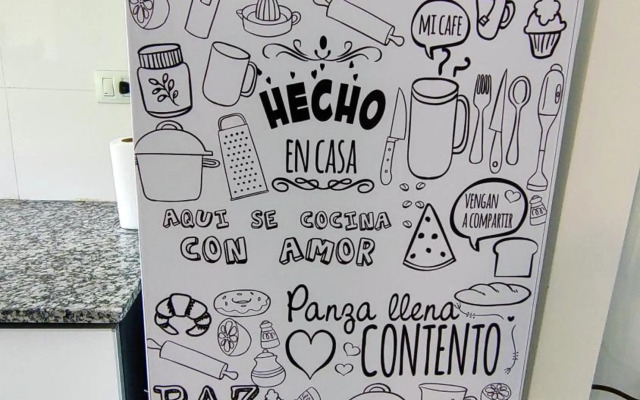 MI CAFE
HECHO
EN CASA
AQUI SE COCINA
CON AMOR
VENGAN
A COMPARTIR
Panza llena
CONTENTO